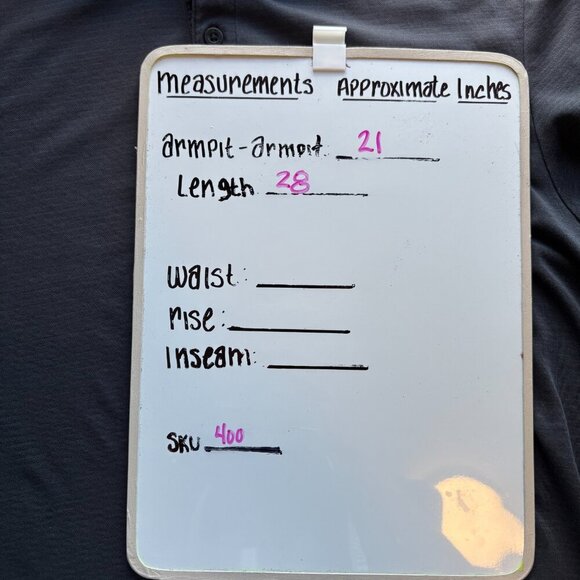 measurements Approximate Inches
armpit-armpit: 21
Length 28
waist:
rise:
inseam:
SKU 400